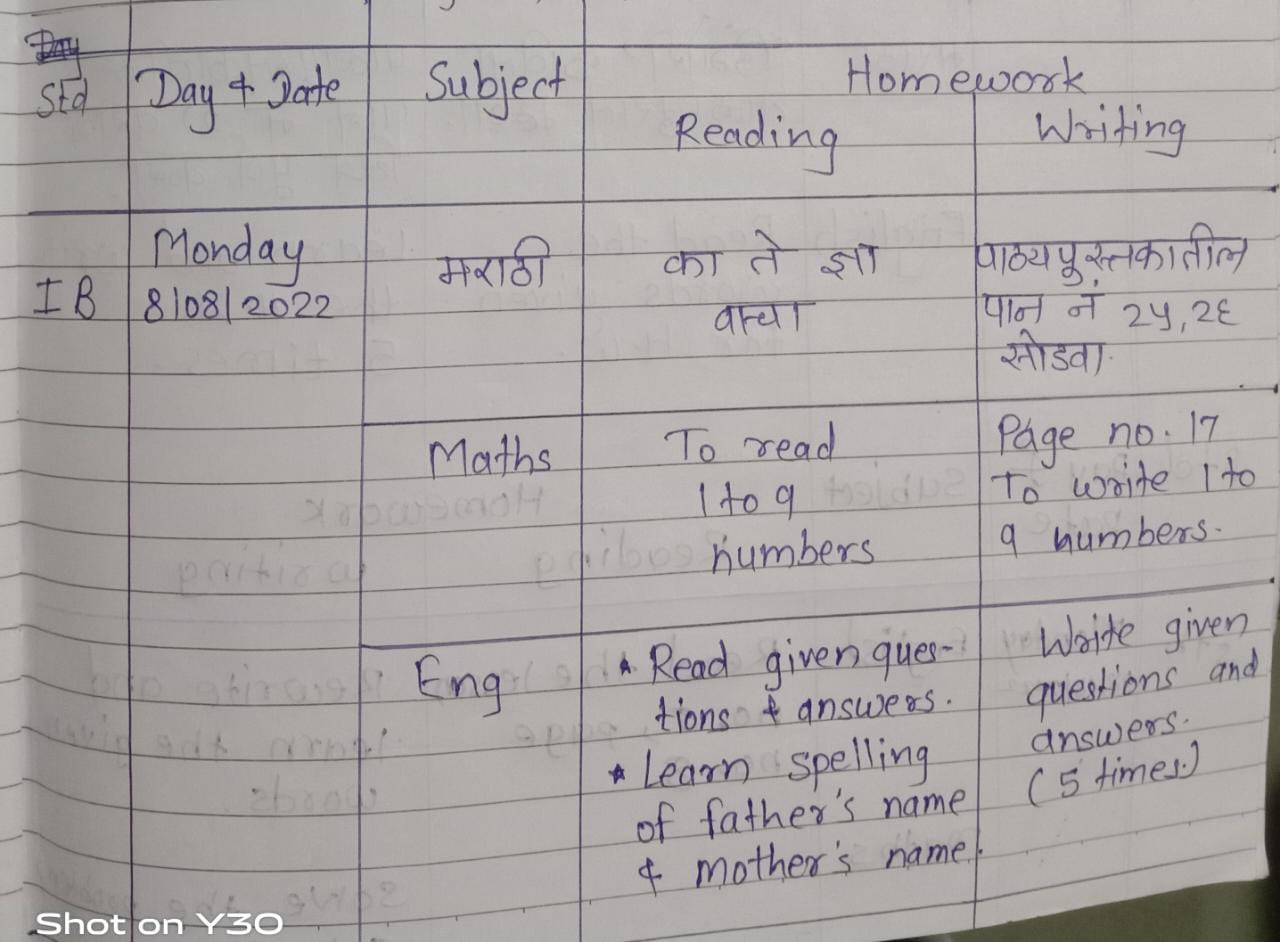 Std
Day & Date
Subject
Homework
Reading
Writing
I B
Monday
8/08/2022
मराठी
का ते ज्ञा
वाचा
पाठ्यपुस्तकातील
पान नं २५,२६
सोडवा.
Maths
To read
1 to 9
numbers
Page no. 17
To write 1 to
9 numbers.
Eng
* Read given ques-
tions & answers.
* Learn spelling
of father's name
& mother's name.
Write given
questions and
answers.
(5 times.)
Shot on Y30